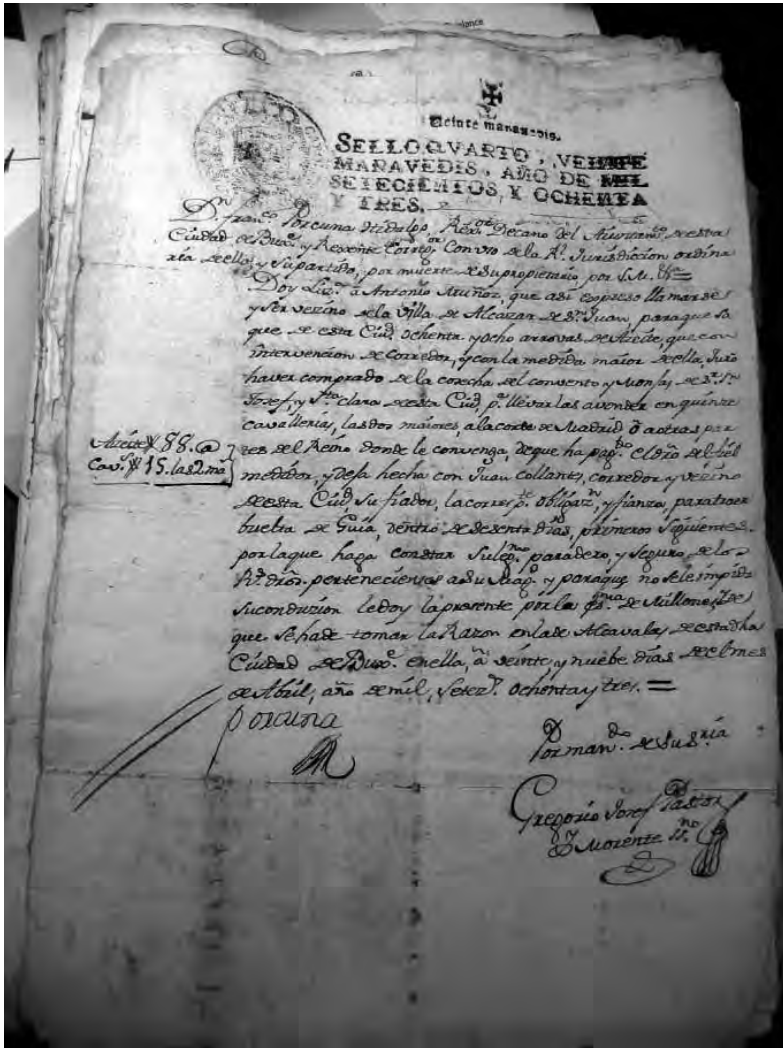 Veinte maravedis.
SELLO QVARTO, VEINTE
MARAVEDIS, AÑO DE MIL
SETECIENTOS, Y OCHENTA
Y TRES.
Dn. Franco. Porcuna Hidalgo, Rexor. Decano del Aiuntamto. de esta
Ciudad de Buxe. y Rexente Corregor. Con vso de la Rl. Jurisdicion ordina
ria de ella y su partido, por muerte de su propietario por S.M. &a =
Doy Lizª. â Antonio Muñoz, que asi expreso llamarse
y ser vezino de la Villa de Alcazar de Sn. Juan, para que sa
que de esta Ciud. ochenta y ocho arrovas de Azeite, que con
intervencion de corredor, y con la medida maior de ella, Juro
haver comprado de la cosecha del convento y Monjas de Sr. Sn.
Josef, y Sta. clara de esta Ciud. pª. llevarlas a vender en quinze
cavallerias, las dos maiores, a la corte de Madrid ô a otras par
tes del Reino donde le convenga, de que ha pagdo. el dro del fiel
medidor, y desa hecha con Juan Collantes, corredor y vezino
de esta Ciud. su fiador, la correspte. obligazn. y fianza, para traer
buelta de Guia, dentro de sesenta dias, primeros siguientes.
por la que haga constar su legmo. paradero, y seguro de los
Rs. dros. pertenecientes a su Magd. y para que no se le impida
su conduzion le doy la presente por la de Millones, de
que se ha de tomar la Razon en la de Alcavalas de esta dha
Ciudad de Buxe. en ella, â veinte y nuebe dias de el mes
de Abril, año de mil, setezs. ochenta y tres. =
Azeite 88. @
Cavs. 15. las 2. mas
Porcuna
Por mando. de su Sria
Gregorio Josef Pastor
y Morente Sno